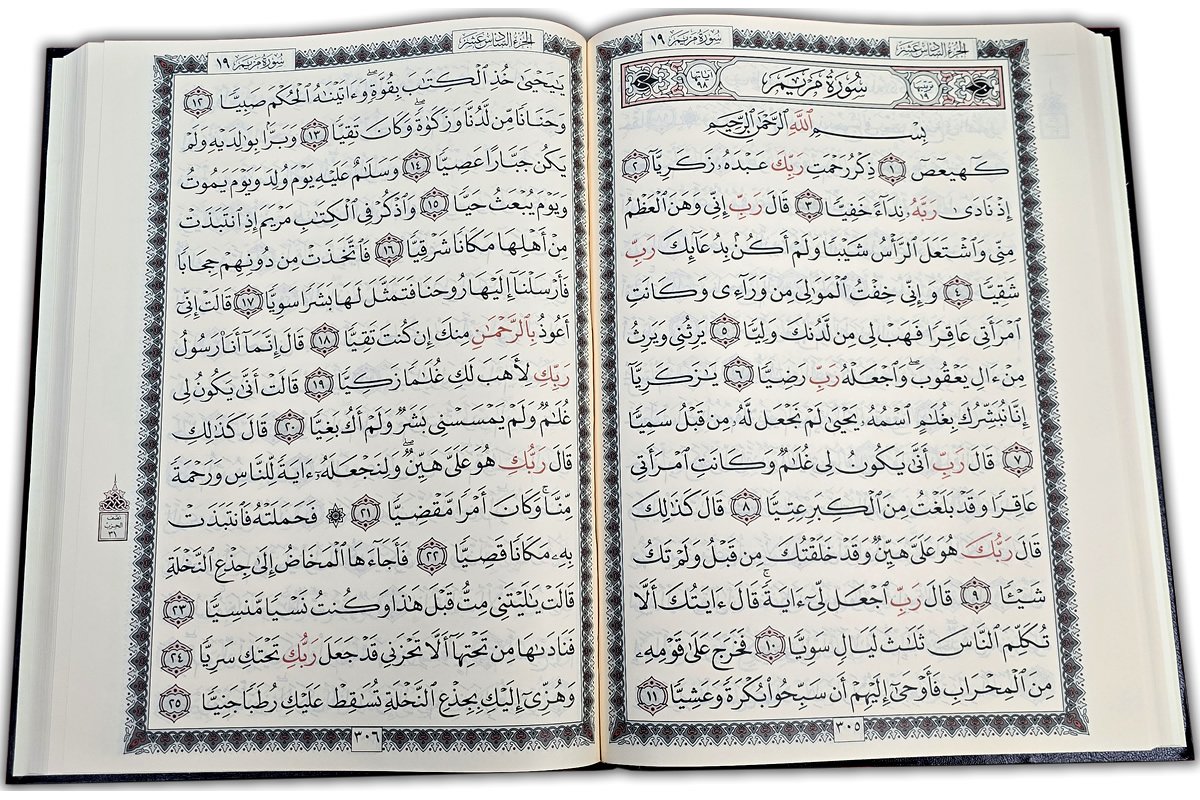 الجزء السادس عشر
سورة مريم ١٩
مكية ١٩
سُورَةُ مَرْيَمَ
آياتها ٩٨
بِسْمِ ٱللَّهِ ٱلرَّحْمَٰنِ ٱلرَّحِيمِ
كٓهيعٓصٓ ١ ذِكْرُ رَحْمَتِ رَبِّكَ عَبْدَهُۥ زَكَرِيَّآ ٢
إِذْ نَادَىٰ رَبَّهُۥ نِدَآءً خَفِيًّا ٣ قَالَ رَبِّ إِنِّى وَهَنَ ٱلْعَظْمُ
مِنِّى وَٱشْتَعَلَ ٱلرَّأْسُ شَيْبًا وَلَمْ أَكُنۢ بِدُعَآئِكَ رَبِّ
شَقِيًّا ٤ وَإِنِّى خِفْتُ ٱلْمَوَٰلِىَ مِن وَرَآءِى وَكَانَتِ
ٱمْرَأَتِى عَاقِرًا فَهَبْ لِى مِن لَّدُنكَ وَلِيًّا ٥ يَرِثُنِى وَيَرِثُ
مِنْ ءَالِ يَعْقُوبَ ۖ وَٱجْعَلْهُ رَبِّ رَضِيًّا ٦ يَٰزَكَرِيَّآ
إِنَّا نُبَشِّرُكَ بِغُلَٰمٍ ٱسْمُهُۥ يَحْيَىٰ لَمْ نَجْعَل لَّهُۥ مِن قَبْلُ سَمِيًّا
٧ قَالَ رَبِّ أَنَّىٰ يَكُونُ لِى غُلَٰمٌ وَكَانَتِ ٱمْرَأَتِى
عَاقِرًا وَقَدْ بَلَغْتُ مِنَ ٱلْكِبَرِ عِتِيًّا ٨ قَالَ كَذَٰلِكَ
قَالَ رَبُّكَ هُوَ عَلَىَّ هَيِّنٌ وَقَدْ خَلَقْتُكَ مِن قَبْلُ وَلَمْ تَكُ
شَيْـًٔا ٩ قَالَ رَبِّ ٱجْعَل لِّىٓ ءَايَةً ۚ قَالَ ءَايَتُكَ أَلَّا
تُكَلِّمَ ٱلنَّاسَ ثَلَٰثَ لَيَالٍ سَوِيًّا ١٠ فَخَرَجَ عَلَىٰ قَوْمِهِۦ
مِنَ ٱلْمِحْرَابِ فَأَوْحَىٰٓ إِلَيْهِمْ أَن سَبِّحُوا۟ بُكْرَةً وَعَشِيًّا ١١
٣٠٥
الجزء السادس عشر
سورة مريم ١٩
يَٰيَحْيَىٰ خُذِ ٱلْكِتَٰبَ بِقُوَّةٍ ۖ وَءَاتَيْنَٰهُ ٱلْحُكْمَ صَبِيًّا ١٢
وَحَنَانًا مِّن لَّدُنَّا وَزَكَوٰةً ۖ وَكَانَ تَقِيًّا ١٣ وَبَرًّۢا بِوَٰلِدَيْهِ وَلَمْ
يَكُن جَبَّارًا عَصِيًّا ١٤ وَسَلَٰمٌ عَلَيْهِ يَوْمَ وُلِدَ وَيَوْمَ يَمُوتُ
وَيَوْمَ يُبْعَثُ حَيًّا ١٥ وَٱذْكُرْ فِى ٱلْكِتَٰبِ مَرْيَمَ إِذِ ٱنتَبَذَتْ
مِنْ أَهْلِهَا مَكَانًا شَرْقِيًّا ١٦ فَٱتَّخَذَتْ مِن دُونِهِمْ حِجَابًا
فَأَرْسَلْنَآ إِلَيْهَا رُوحَنَا فَتَمَثَّلَ لَهَا بَشَرًا سَوِيًّا ١٧ قَالَتْ إِنِّىٓ
أَعُوذُ بِٱلرَّحْمَٰنِ مِنكَ إِن كُنتَ تَقِيًّا ١٨ قَالَ إِنَّمَآ أَنَا۠ رَسُولُ
رَبِّكِ لِأَهَبَ لَكِ غُلَٰمًا زَكِيًّا ١٩ قَالَتْ أَنَّىٰ يَكُونُ لِى
غُلَٰمٌ وَلَمْ يَمْسَسْنِى بَشَرٌ وَلَمْ أَكُ بَغِيًّا ٢٠ قَالَ كَذَٰلِكِ
قَالَ رَبُّكِ هُوَ عَلَىَّ هَيِّنٌ ۖ وَلِنَجْعَلَهُۥٓ ءَايَةً لِّلنَّاسِ وَرَحْمَةً
مِّنَّا ۚ وَكَانَ أَمْرًا مَّقْضِيًّا ٢١ ۞ فَحَمَلَتْهُ فَٱنتَبَذَتْ
بِهِۦ مَكَانًا قَصِيًّا ٢٢ فَأَجَآءَهَا ٱلْمَخَاضُ إِلَىٰ جِذْعِ ٱلنَّخْلَةِ
قَالَتْ يَٰلَيْتَنِى مِتُّ قَبْلَ هَٰذَا وَكُنتُ نَسْيًا مَّنسِيًّا ٢٣
فَنَادَىٰهَا مِن تَحْتِهَآ أَلَّا تَحْزَنِى قَدْ جَعَلَ رَبُّكِ تَحْتَكِ سَرِيًّا ٢٤
وَهُزِّىٓ إِلَيْكِ بِجِذْعِ ٱلنَّخْلَةِ تُسَٰقِطْ عَلَيْكِ رُطَبًا جَنِيًّا ٢٥
نصف
الحزب
٣١
٣٠٦